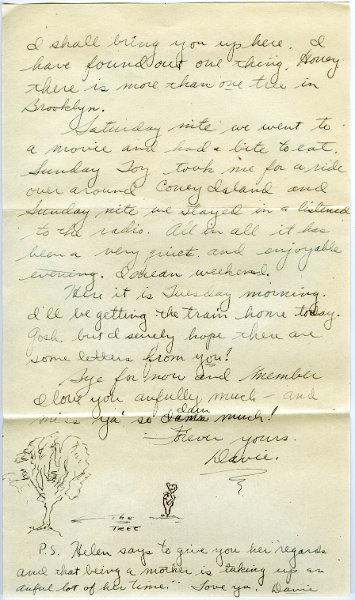 I shall bring you up here. I
have found out one thing, Honey
there is more than one tree in
Brooklyn.
Saturday nite we went to
a movie and had a bite to eat.
Sunday Joy took me for a ride
over around Coney Island and
Sunday nite we stayed in & listened
to the radio. All in all it has
been a very quiet and enjoyable
evening. I mean weekend.
Here it is Tuesday morning.
I'll be getting the train home today.
Gosh but I surely hope there are
some letters from you!
Bye for now and 'member
I love you awfully much – and
miss 'ya' so damn much!
Forever yours.
Davie.
THE
TREE
P.S. Helen says to give you her regards
and that being a mother is taking up an
awful lot of her time." Love ya. Davie